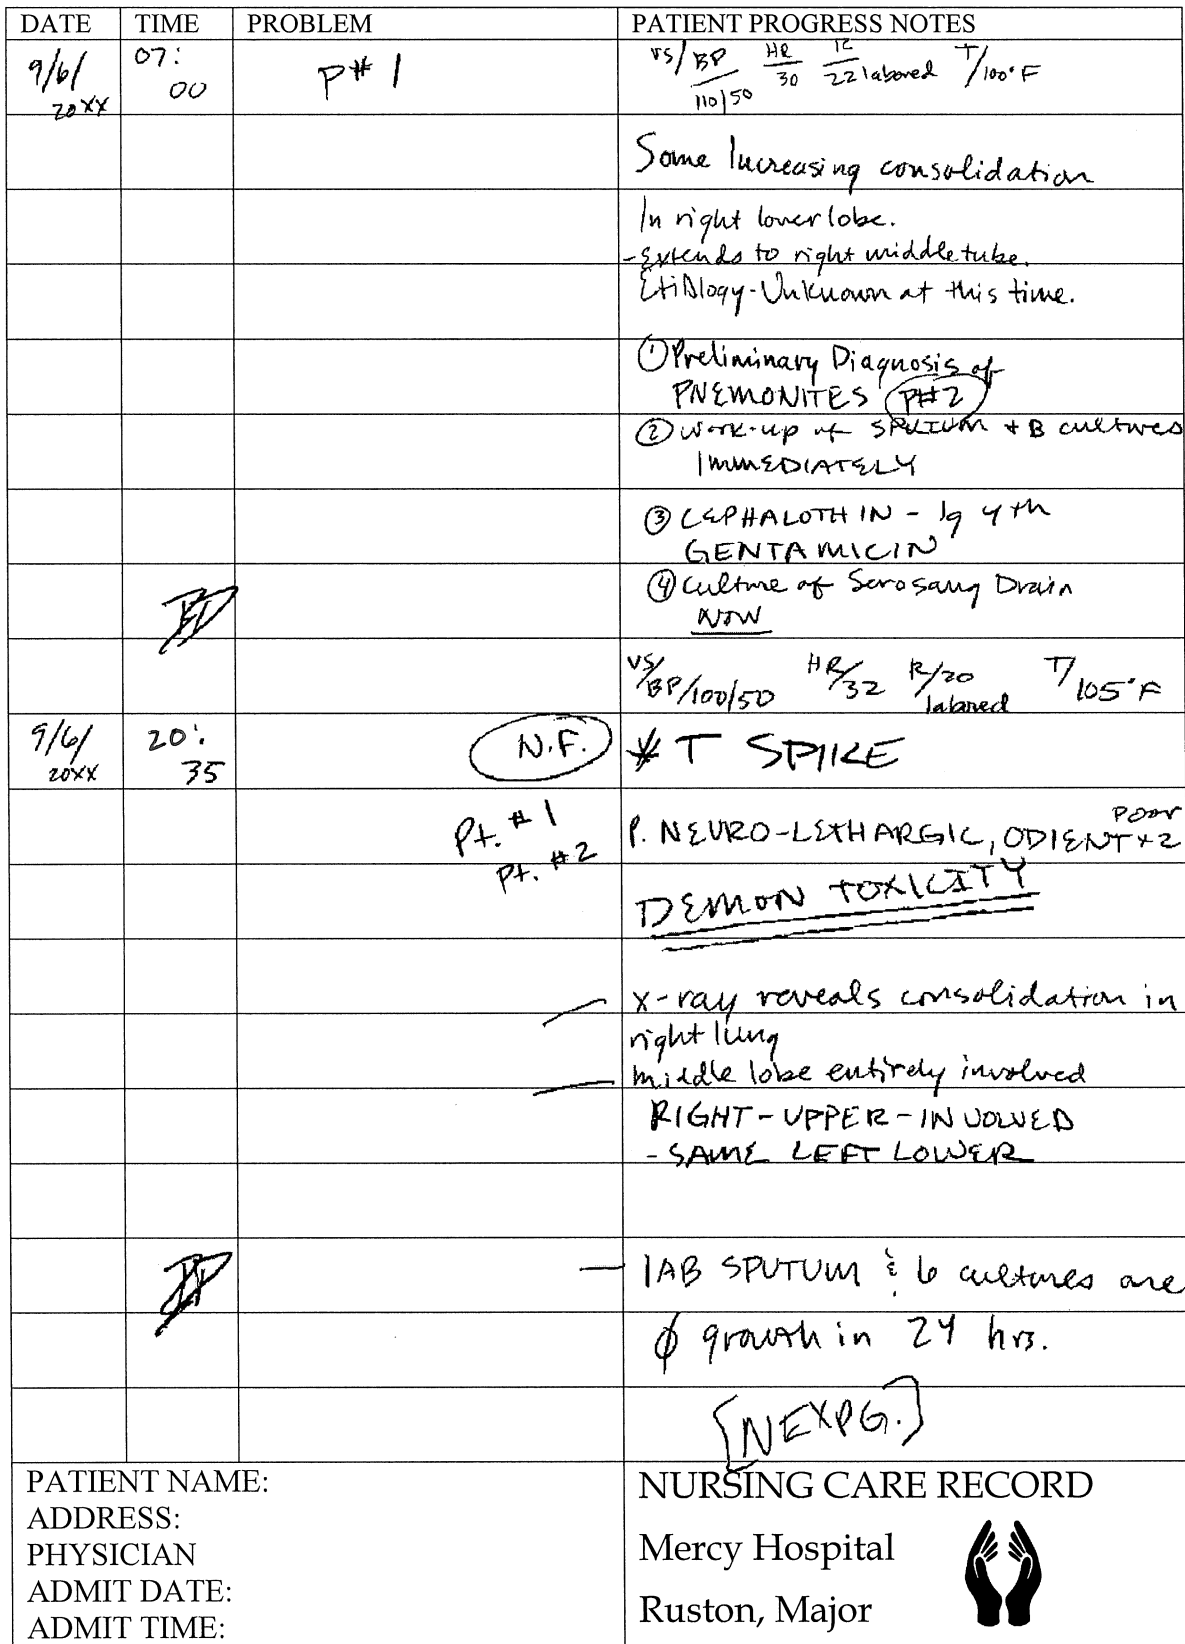 DATE TIME PROBLEM PATIENT PROGRESS NOTES
9/6/ 07: P# 1 VS/BP HR R T/100°F
20XX 00 110/50 30 22 labored
Some Increasing consolidation
In right lower lobe.
- Extends to right middle tube.
Etiology - Unknown at this time.
① Preliminary Diagnosis of
PNEMONITES P#2
② Work-up of SPUTUM + B cultures
IMMEDIATELY
③ CEPHALOTHIN - 1g 4th
GENTAMICIN
④ Culture of Serosang Drain
NOW
VS/BP/100/50 HR/32 R/20 T/105°F
labored
9/6/ 20: N.F. * T SPIKE
20XX 35
Pt. #1 P. NEURO-LETHARGIC, ODIENT x2 POOR
Pt. #2
DEMON TOXICITY
— X-ray reveals consolidation in
right lung
— Middle lobe entirely involved
RIGHT - UPPER - INVOLVED
- SAME LEFT LOWER
— LAB SPUTUM & b cultures are
∅ growth in 24 hrs.
[NEXPG.]
PATIENT NAME:
ADDRESS:
PHYSICIAN
ADMIT DATE:
ADMIT TIME:
NURSING CARE RECORD
Mercy Hospital
Ruston, Major